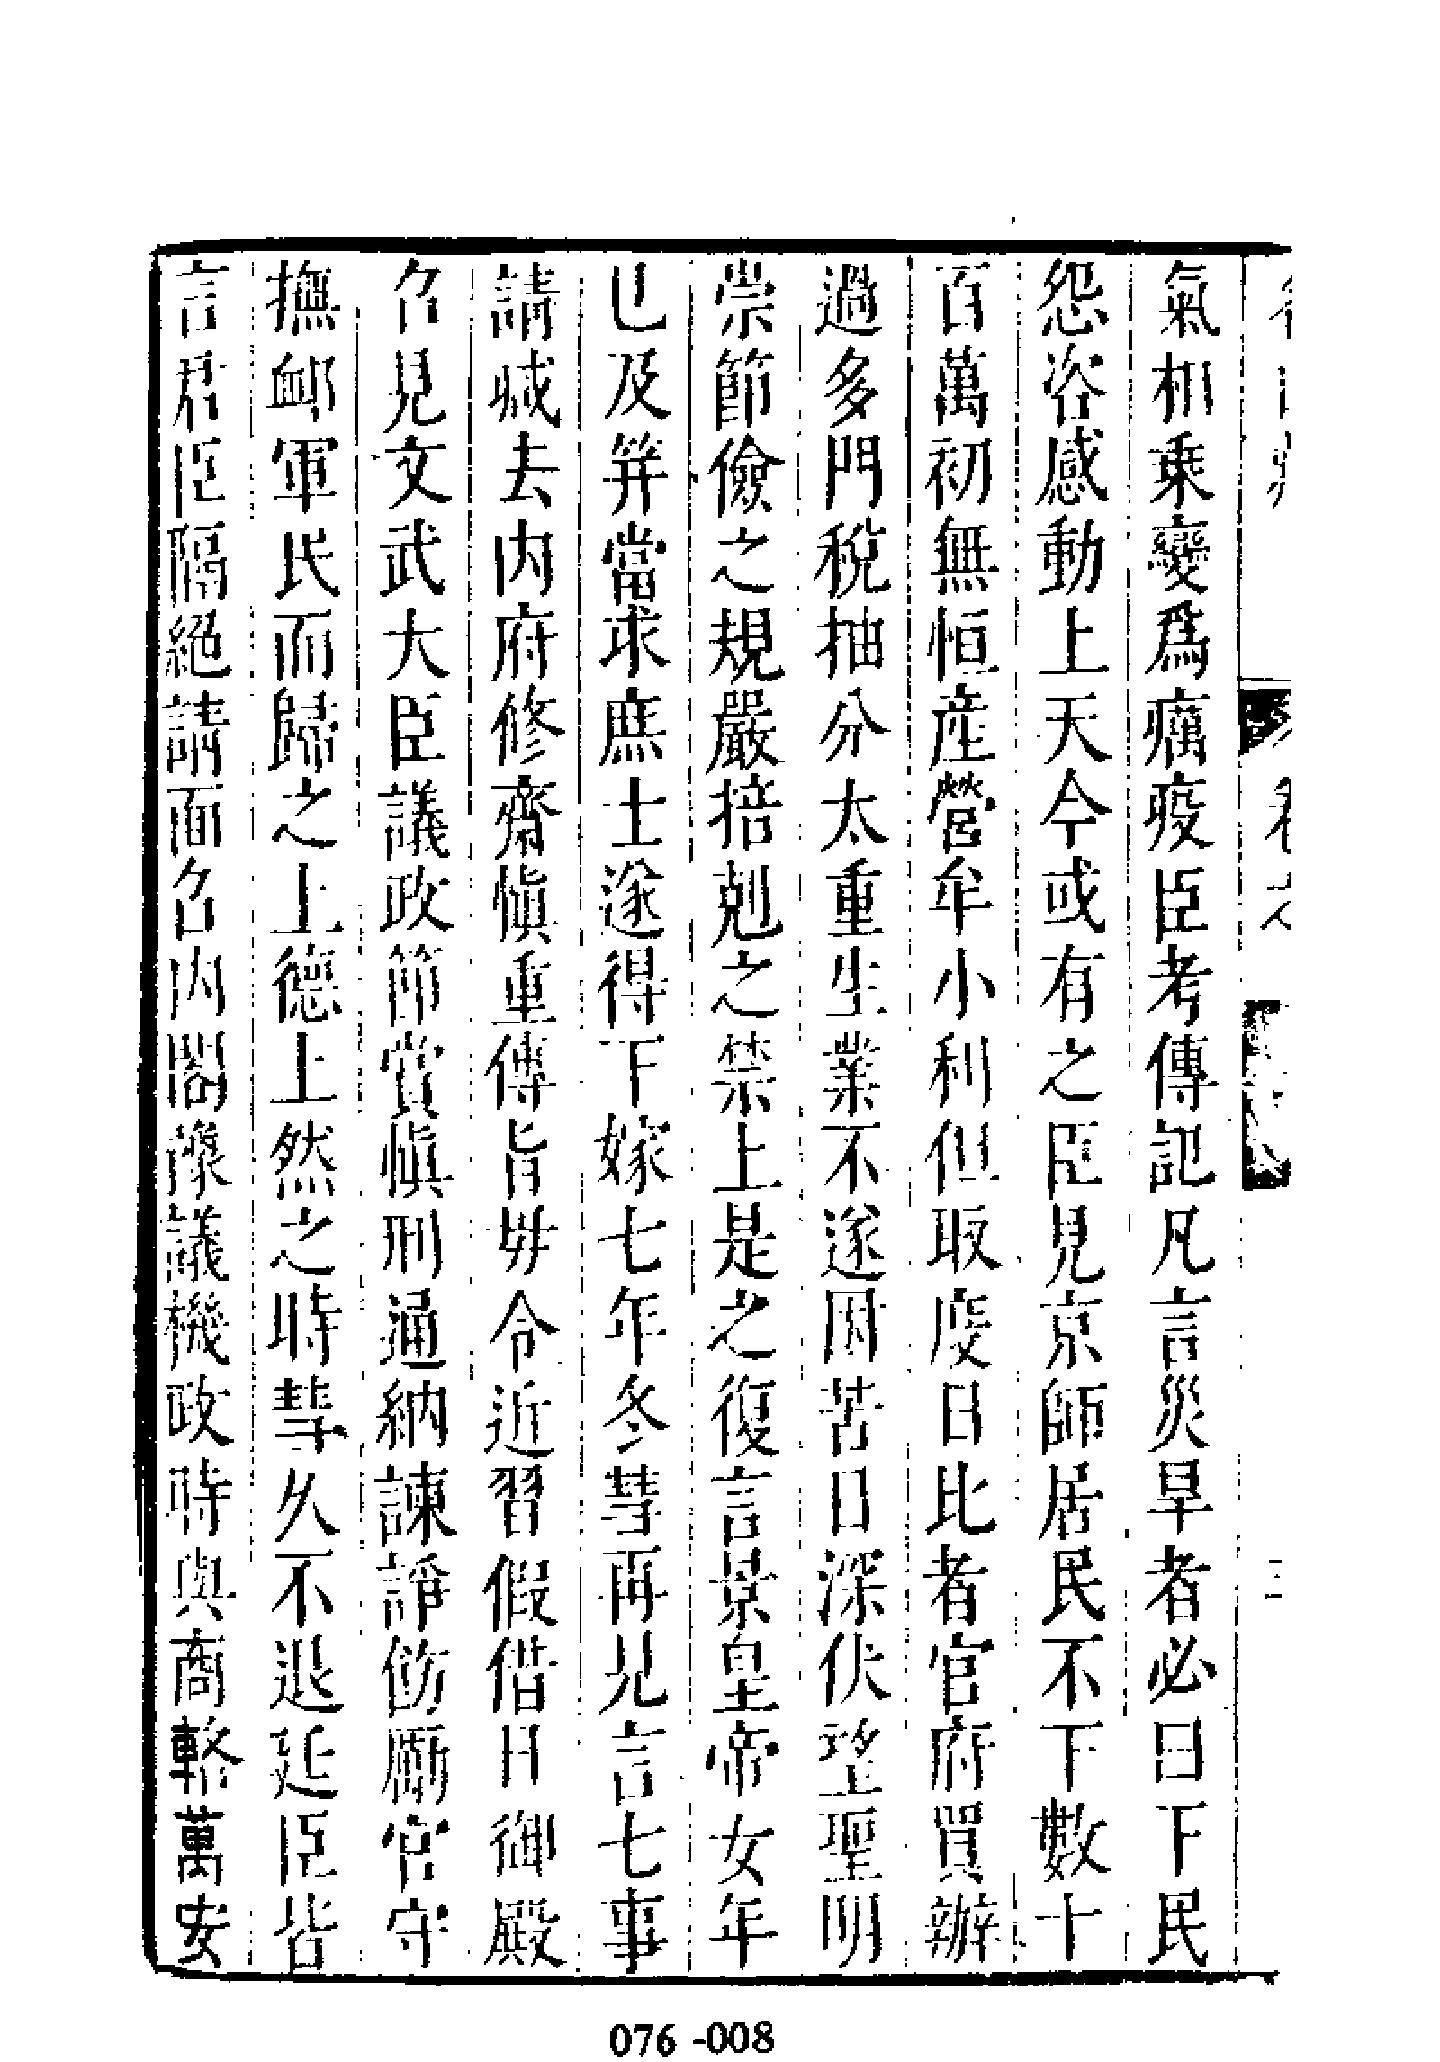 氣相乘變爲癘疫臣考傳記凡言災旱者必曰下民
怨咨感動上天今或有之臣見京師居民不下數十
百萬初無恒産營牟小利但取度日比者官府買辦
過多門稅抽分太重生業不遂困苦日深伏望聖明
崇節儉之規嚴掊剋之禁上是之復言景皇帝女年
已及笄當求庶士遂得下嫁七年冬彗再見言七事
請减去内府修齋慎重傳旨毋令近習假借日御殿
召見文武大臣議政節賞慎刑通納諫諍飭勵官守
撫䘏軍民而歸之上德上然之時彗久不退廷臣皆
言君臣隔絕請面召内閣諸議機政時與商輅萬安
卷六
三
076 -008